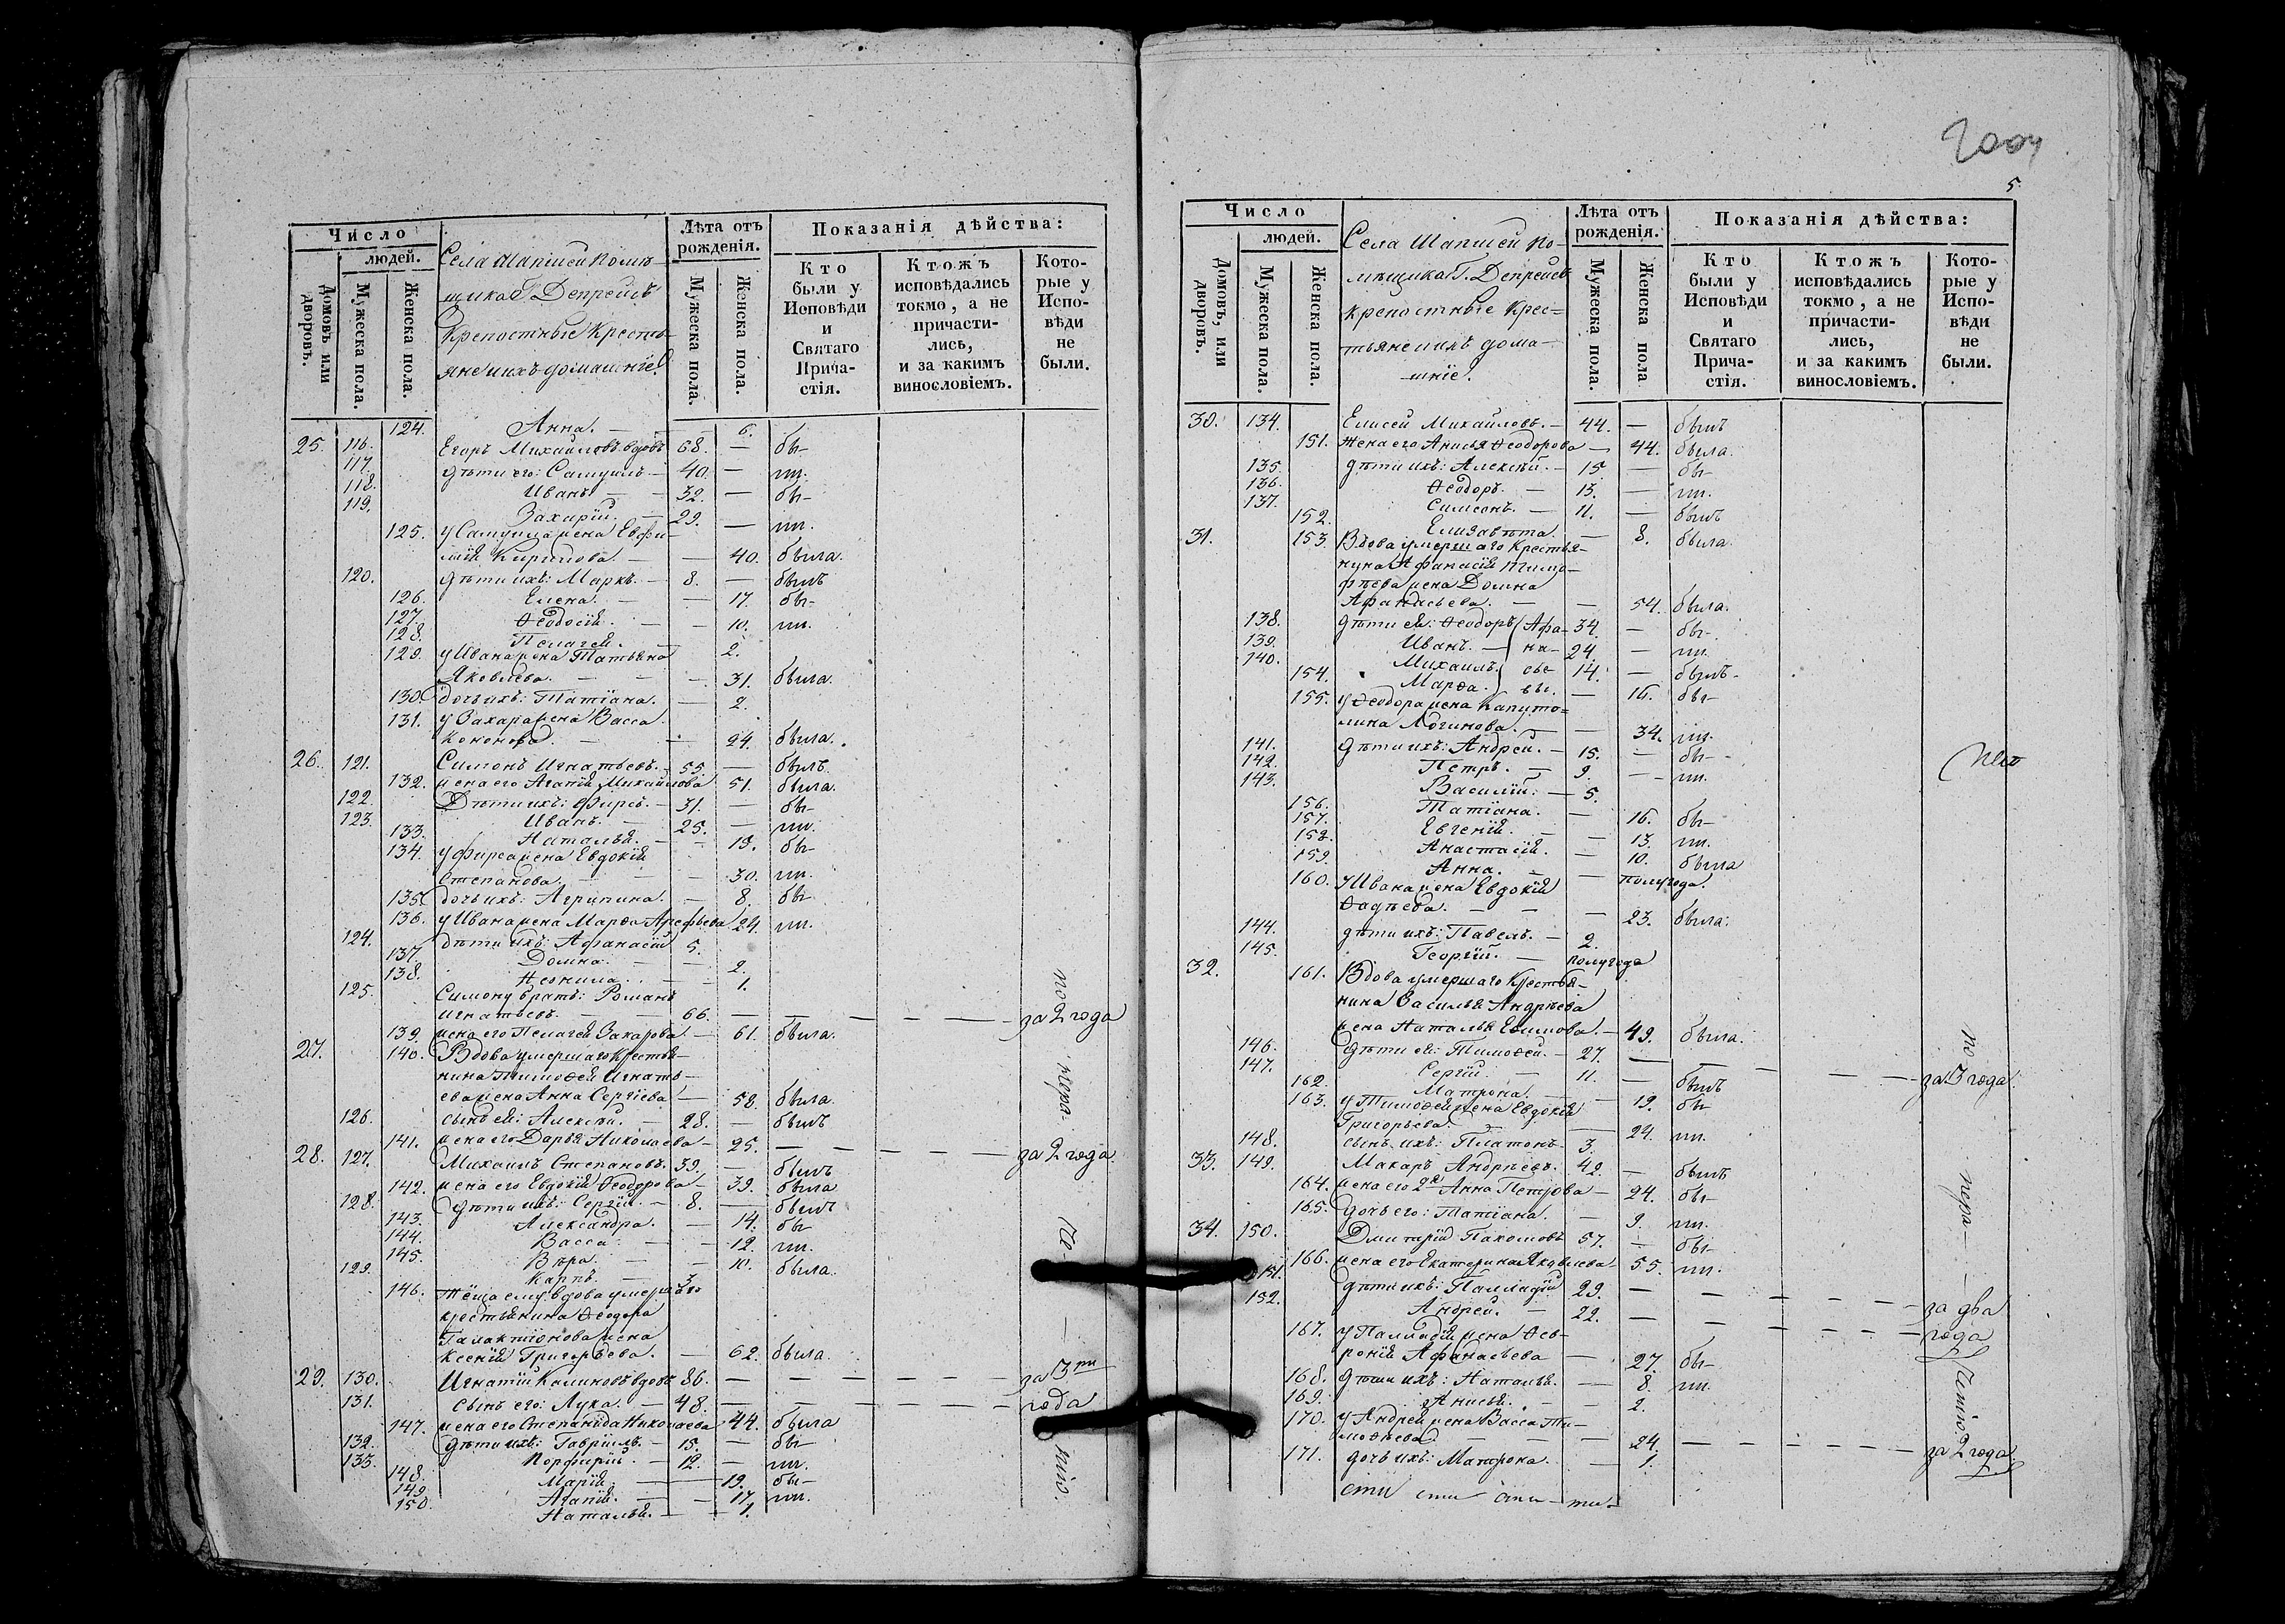 Число
людей.
Домовъ или дворовъ.
Мужеска пола.
Женска пола.
Села Шапшей помѣ-
щика Г. Депрейсъ
крепостные кресть-
яне и ихъ домашніе.
Лѣта отъ рожденія.
Мужеска пола.
Женска пола.
Показанія дѣйства:
Кто были у Исповѣди и Святаго Прича-стія.
Ктожъ исповѣдались токмо, а не причасти-лись, и за какимъ винословіемъ.
Кото-рые у Испо-вѣди не были.
124. Анна. — — 6.
25. 116. Егоръ Михайловъ вдовъ 68. — бы-
117. дѣти его: Самуилъ — 40. — ли.
118. Иванъ — 32. — бы-
119. Захарій. — 29. — ли.
125. у Самуила жена Евфи-
мія Кирилова. — — 40. была.
120. дѣти ихъ: Маркъ. — 8. — былъ
126. Елена. — — 17. бы-
127. Ѳеодосія. — — 10. ли.
128. Пелагея. — 2.
129. у Ивана жена Татьяна
Яковлева. — — 31. была.
130. дочь ихъ: Татіана. — 2.
131. у Захара жена Васса
Кононова. — — 24. была.
26. 121. Симонъ Игнатьевъ. — 55. — былъ.
132. жена его Агапія Михайлова 51. была.
122. Дѣти ихъ: Фирсъ. — 31. — бы-
123. Иванъ. — 25. — ли.
133. Наталья. — — 13. бы-
134. у Фирса жена Евдокія
Степанова. — — 30. ли.
135. дочь ихъ: Агрипина. — 8. бы-
136. у Ивана жена Марѳа Арефьева 24. ли.
124. дѣти ихъ: Афанасій 5.
137. Домна. — — 2.
138. Неонила. — — 1.
125. Симону братъ: Романъ
Игнатьевъ. — — 66. — — — — — за 2 года
139. жена его Пелагея Захарова — 61. была.
27. 140. Вдова умершаго кресть-
нина Тимоѳея Игнать-
ева жена Анна Сергіева — 58. была.
126. сынъ ея: Алексѣй. — 28. — былъ
141. жена его Дарья Николаева — 25. — — — — — за 2 года.
28. 127. Михаилъ Степановъ. 39. — былъ
142. жена его Евдокія Ѳеодорова — 39. была
128. дѣти ихъ: Сергій. — 8. — былъ
143. Александра. — 14. бы
144. Васса — — 12. ли.
145. Вѣра. — — 10. была.
129. Карпъ. — 3
146. Тёща ему вдова умершаго
крестьянина Ѳеодора
Галактіонова жена
Ксенія Григорьева. — 62. была.
29. 130. Игнатій Калиновъ вдовъ 86. — — — — — за 3ри
131. сынъ его: Лука. — 48. — — — — — года
147. жена его Степанида Николаева 44. была
132. дѣти ихъ: Гавріилъ. — 15. — бы
133. Порфирій. — 12. — ли.
148. Марія. — — 19. бы-
149. Агапія. — — 17. ли.
150. Наталья. — — 1.
по нера- че- нію.
5.
Число
людей.
Домовъ, или дворовъ.
Мужеска пола.
Женска пола.
Села Шапшей по-
мѣщика Г. Депрейсъ
крепостные крес-
тьяне и ихъ дома-
шніе.
Лѣта отъ рожденія.
Мужеска пола.
Женска пола
Показанія дѣйства:
Кто были у Исповѣди и Святаго Прича-стія.
Ктожъ исповѣдались токмо, а не причасти-лись, и за какимъ винословіемъ.
Кото-рые у Испо-вѣди не были.
30. 134. Елисей Михайловъ. — 44. — былъ
151. жена его Анисья Ѳеодорова — 44. была.
135. дѣти ихъ: Алексѣй. — 15 — бы-
136. Ѳеодоръ. — 13. — ли.
137. Симеонъ. — 11. — былъ
152. Елизавѣта. — 8. была.
31. 153. Вдова умершаго кресть-
нина Афанасія Тимо-
фѣева жена Домна
Афанасьева. — — 54. была.
138. дѣти ея: Ѳеодоръ Афа- 34. — бы-
139. Иванъ. — на- 24. — ли.
140. Михаилъ. сье- 14. — былъ-
154. Марѳа. вы. — 16. бы-
155. у Ѳеодора жена Капито-
лина Логинова. — — 34. ли.
141. дѣти ихъ: Андрей. — 15. — бы-
142. Петръ. — 9. — ли.
143. Василій. — 5.
156. Татіана. — 16. бы-
157. Евгенія. — — 13. ли.
158. Анастасія. — 10. была
159. Анна. — — полугода.
160. у Ивана жена Евдокія
Фадѣева. — — — 23. была.
144. дѣти ихъ: Павелъ. — 2.
145. Георгій. — полугода
32. 161. Вдова умершаго кресть-
нина Василья Андрѣева
жена Наталья Ефимова. — 49. была.
146. дѣти ея: Тимоѳей. — 27. — — — — за 3 года.
147. Сергій. — 11. — былъ
162. Матрона. — — 19. бы
163. у Тимоѳея жена Евдокія
Григорьева. — 24. ли.
148. сынъ ихъ: Платонъ. 3.
33. 149. Макаръ Андрѣевъ. 42. — былъ
164. жена его 2я Анна Петрова — 24. бы-
165. дочь его: Татіана. — 9. ли.
34. 150. Дмитрій Пахомовъ 57. — бы-
166. жена его Екатерина Яковлева 55. ли.
151. дѣти ихъ: Палладій 29. — — — — — за два
152. Андрей. — 22. — — — — — года
167. у Палладія жена Фев-
ронія Афанасьева — 27. бы-
168. дѣти ихъ: Наталья. — 8. ли.
169. Анисья. — — 2.
170. у Андрея жена Васса Ти-
моѳеева. — — — 24. — — — — — за 2 года.
171. дочь ихъ: Матрона. — 1.
по нера-